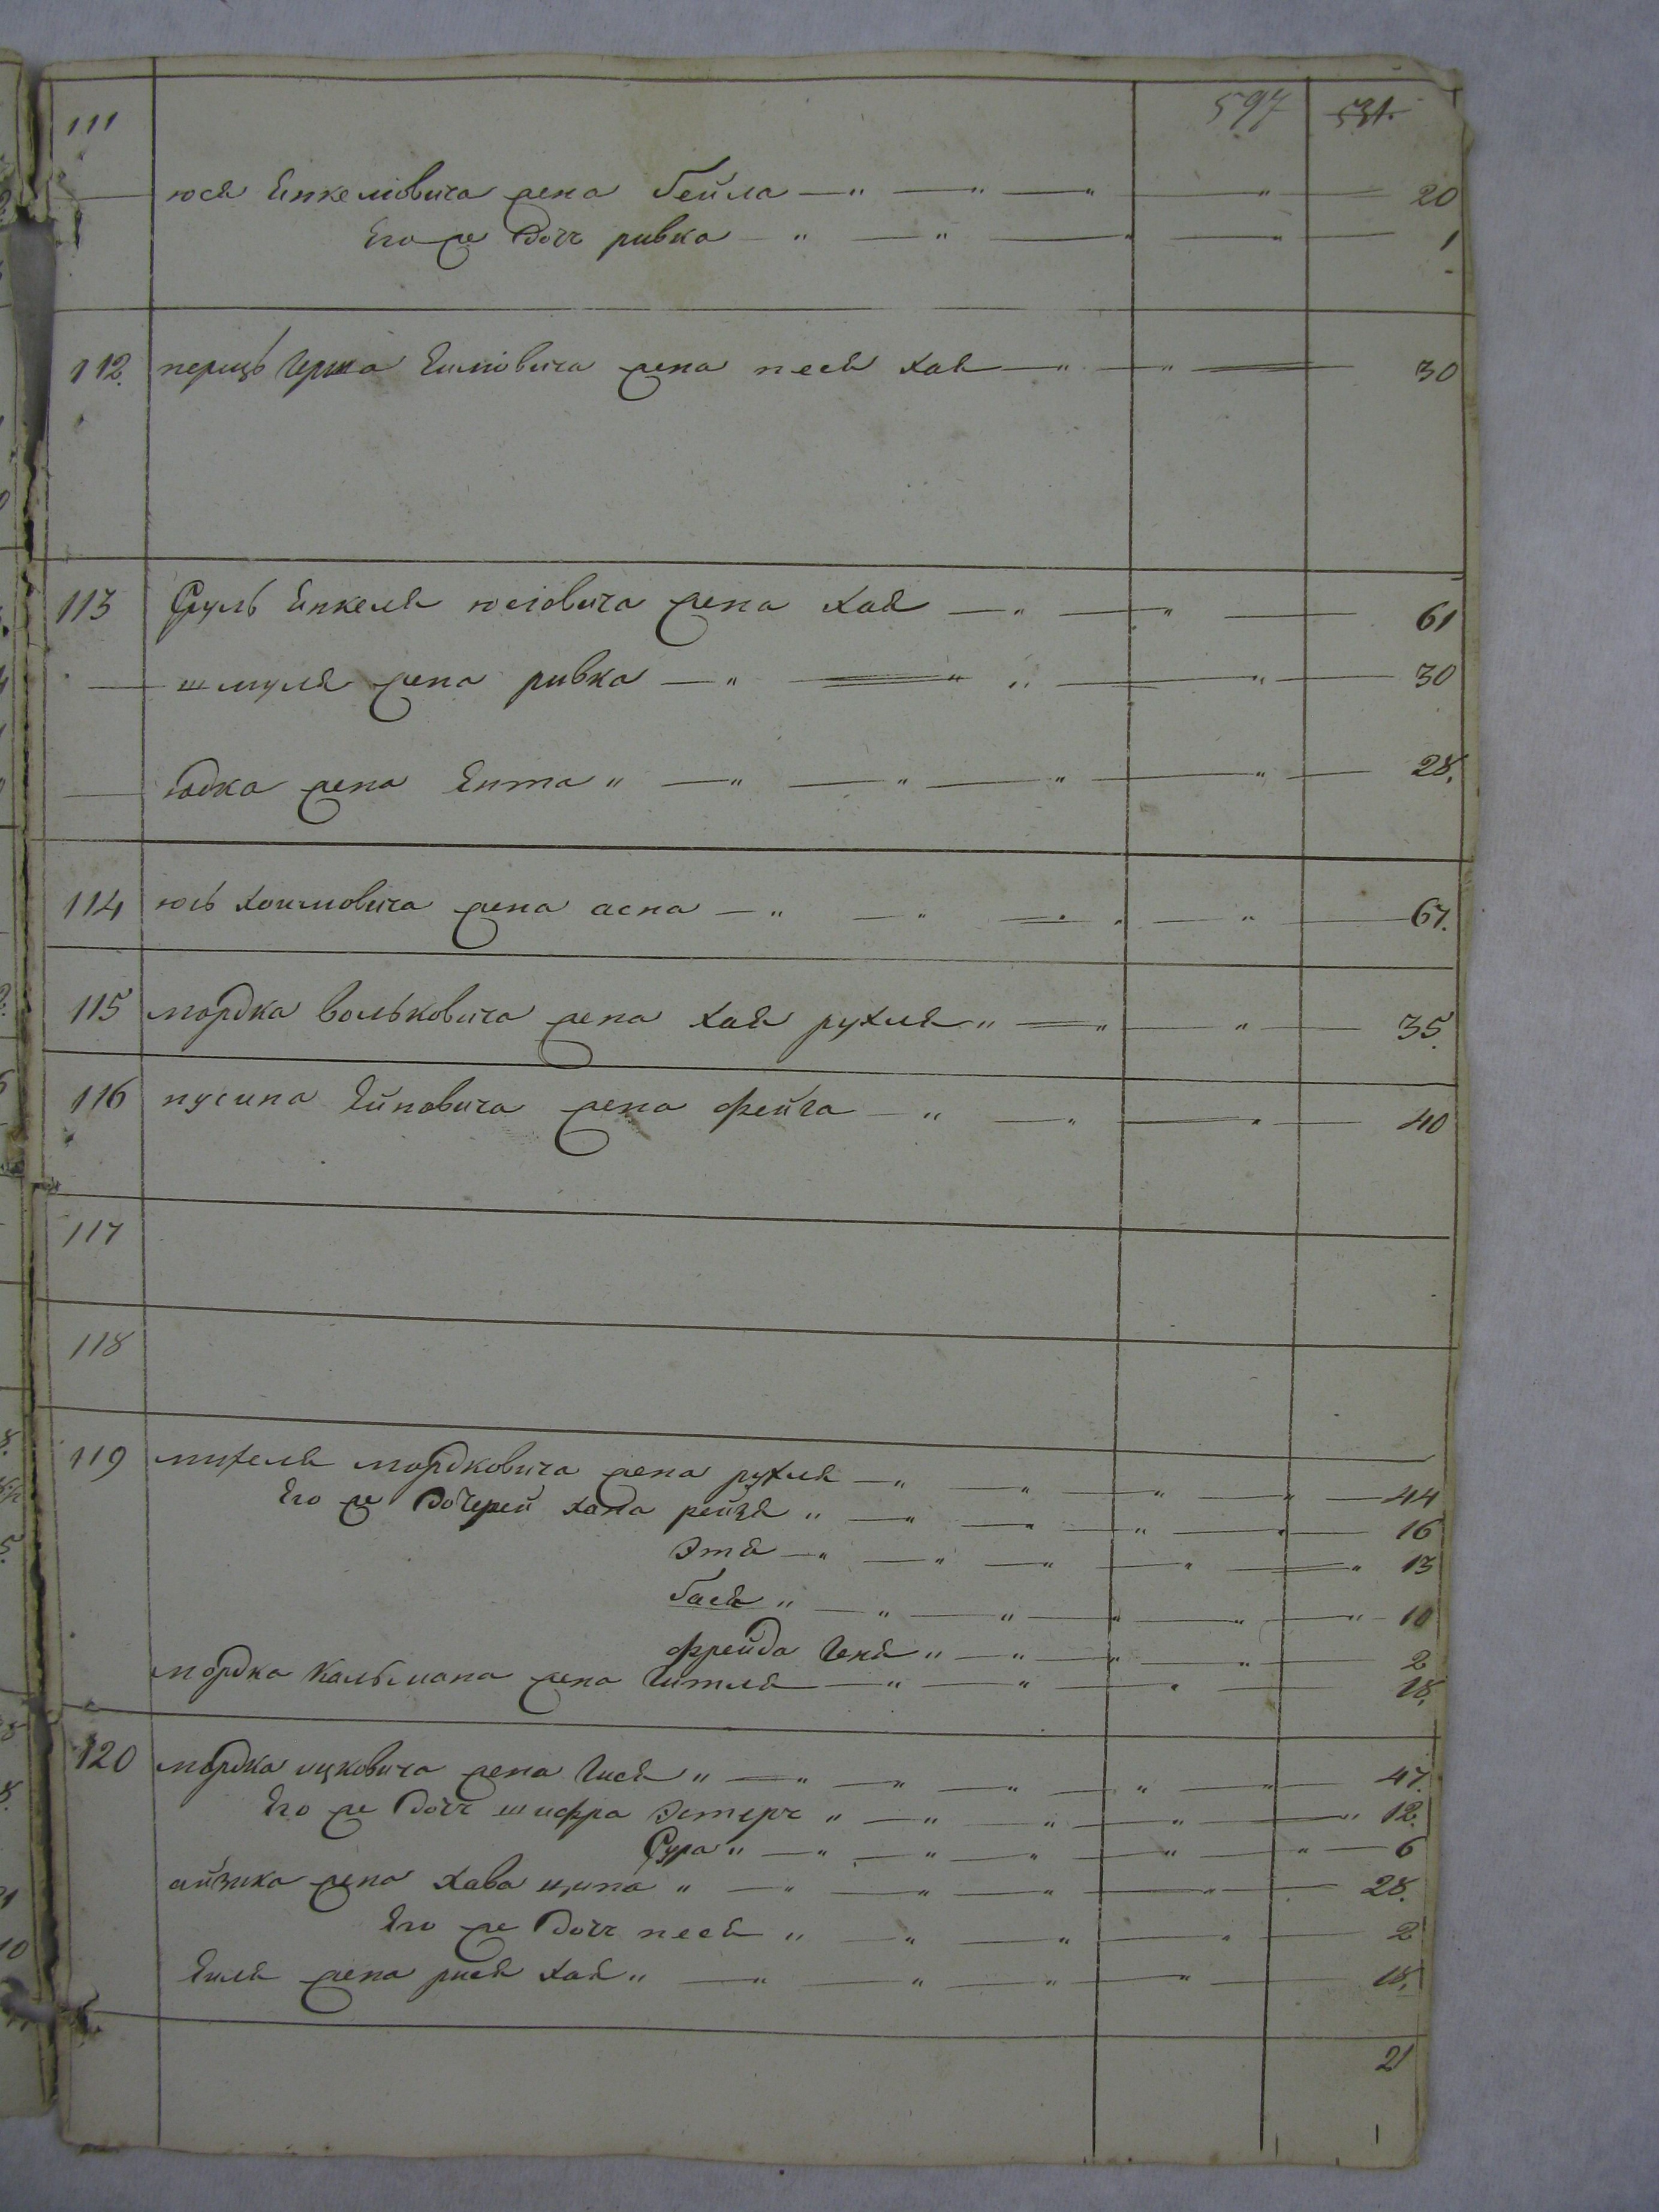 597 531.
111
юся Енкелiовича жена бейла — " — " — " — " — 20
Его же дочь ривка — " — " — " — " — 1
112. перецъ Герша Еиновича жена песя хая — " — " — 30
113 Сруль Енкеля юсiовича жена хая — " — " — 61
— шмуля жена ривка — " — " — " — 30
— юдка жена Ента " — " — " — " — " — 28.
114 юсь хаимовича жена асна — " — " — " — " — 67.
115 мордка вольковича жена хая рухля " — " — " — 35.
116 нусина Ейновича жена фейга — " — " — " — 40
117
118
119 михеля мордковича жена рухля — " — " — " — " — 44
Его же дочерей хана рейзя " — " — " — " — " — 16
Этя — " — " — " — " — " 13
бася " — " — " — " — " — " 10
фрейда Геня " — " — " — " — 2
мордка Кальмана жена Гитля — " — " — " — 18.
120 мордка ицковича жена Гися " — " — " — " — " — " — 47.
Его же дочь шифра Эстерь " — " — " — " — " 12.
Сура " — " — " — " — " — " — 6
айзика жена хава ципа " — " — " — " — " — 28.
Его же дочь песя " — " — " — " — 2
Еиля жена рися хая " — " — " — " — " — 18.
21